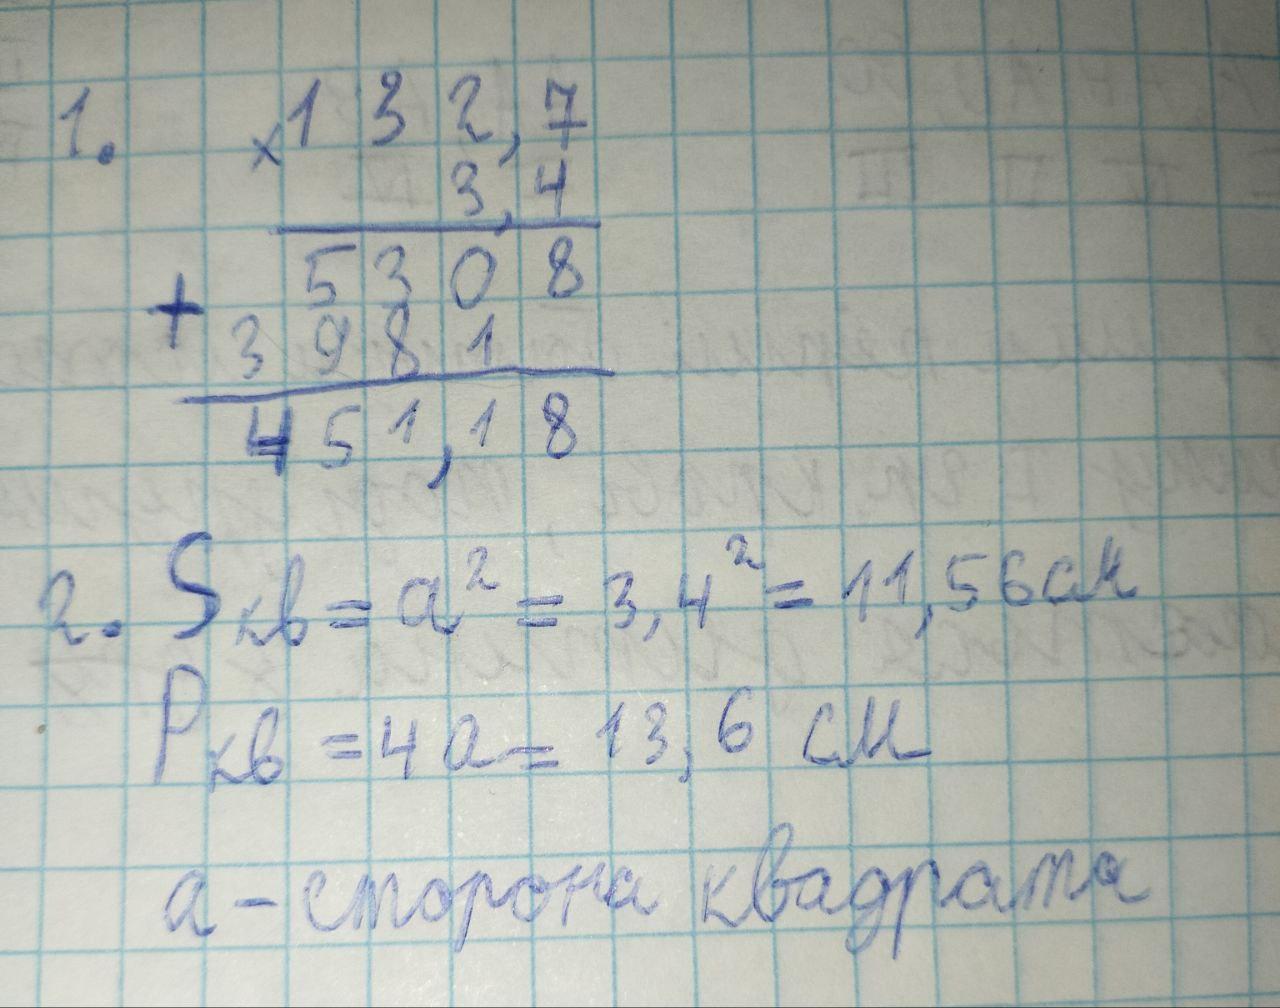 1. × 132,7
3,4
5308
+
3981
451,18
2. Sкв = a² = 3,4² = 11,56 см
Pкв = 4a = 13,6 см
a – сторона квадрата